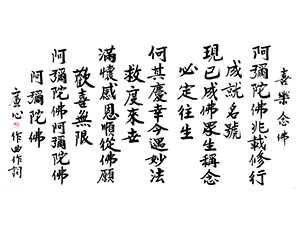 喜樂念佛
阿彌陀佛兆載修行
成就名號
現已成佛眾生稱念
必定往生
何其慶幸今遇妙法
救度來世
滿懷感恩順從佛願
歡喜無限
阿彌陀佛阿彌陀佛
阿彌陀佛
心作曲作詞